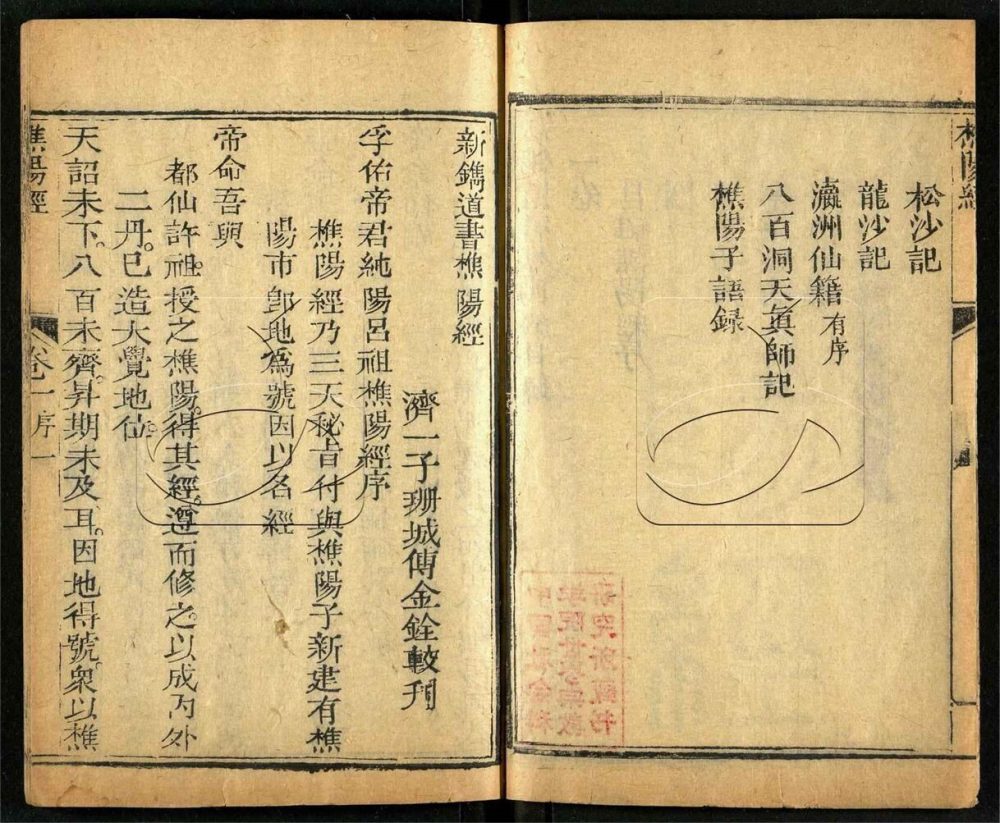 樵陽經
松沙記
龍沙記
瀛洲仙籍有序
八百洞天眞師記
樵陽子語録
新鐫道書樵陽經
濟一子珊城傅金銓較刊
孚佑帝君純陽呂祖樵陽經序
樵陽經乃三天秘旨付與樵陽子新建有樵
陽市卽地爲號因以名經
帝命吾與
都仙許祖授之樵陽得其經遵而修之以成內外
二丹已造大覺地位
天詔未下八百未齊昇期未及耳因地得號衆以樵
樵陽經
卷一序
一